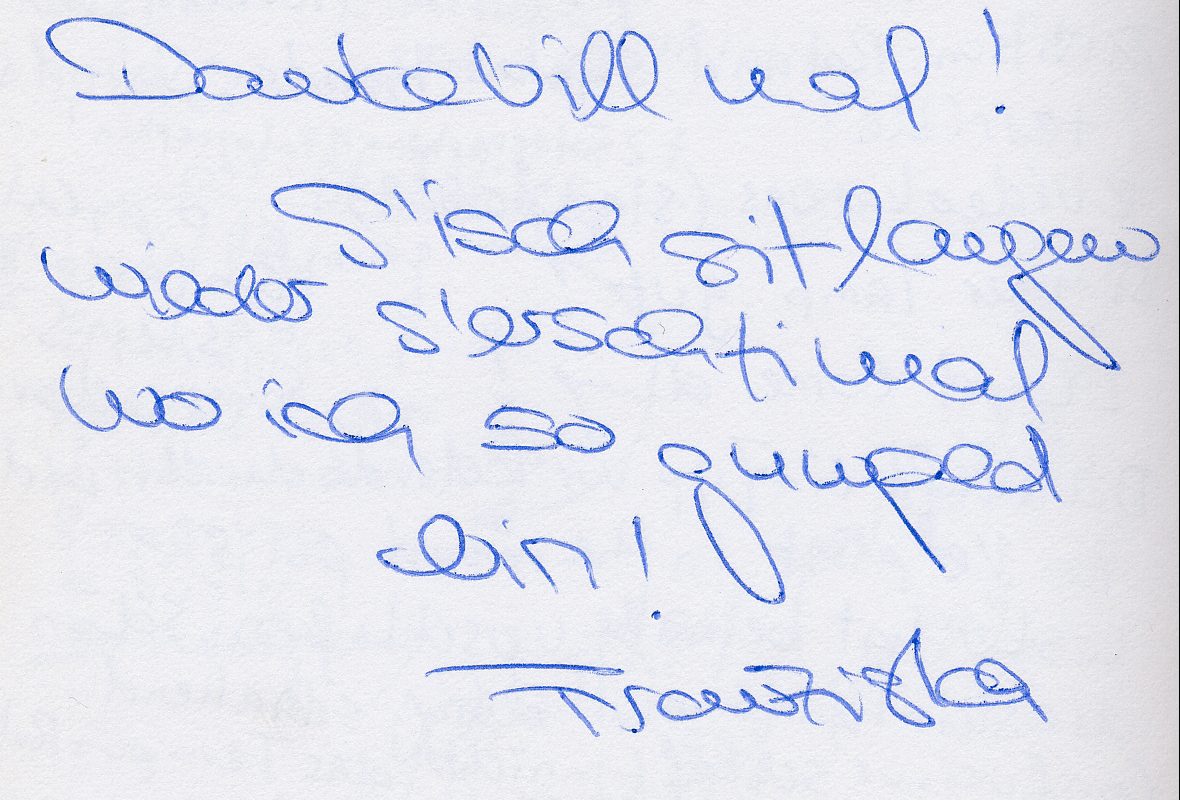 Danke vill mal!
S'isch sit langem
wieder s'erscht mal
wo ich so gumped
bin!
Franziska